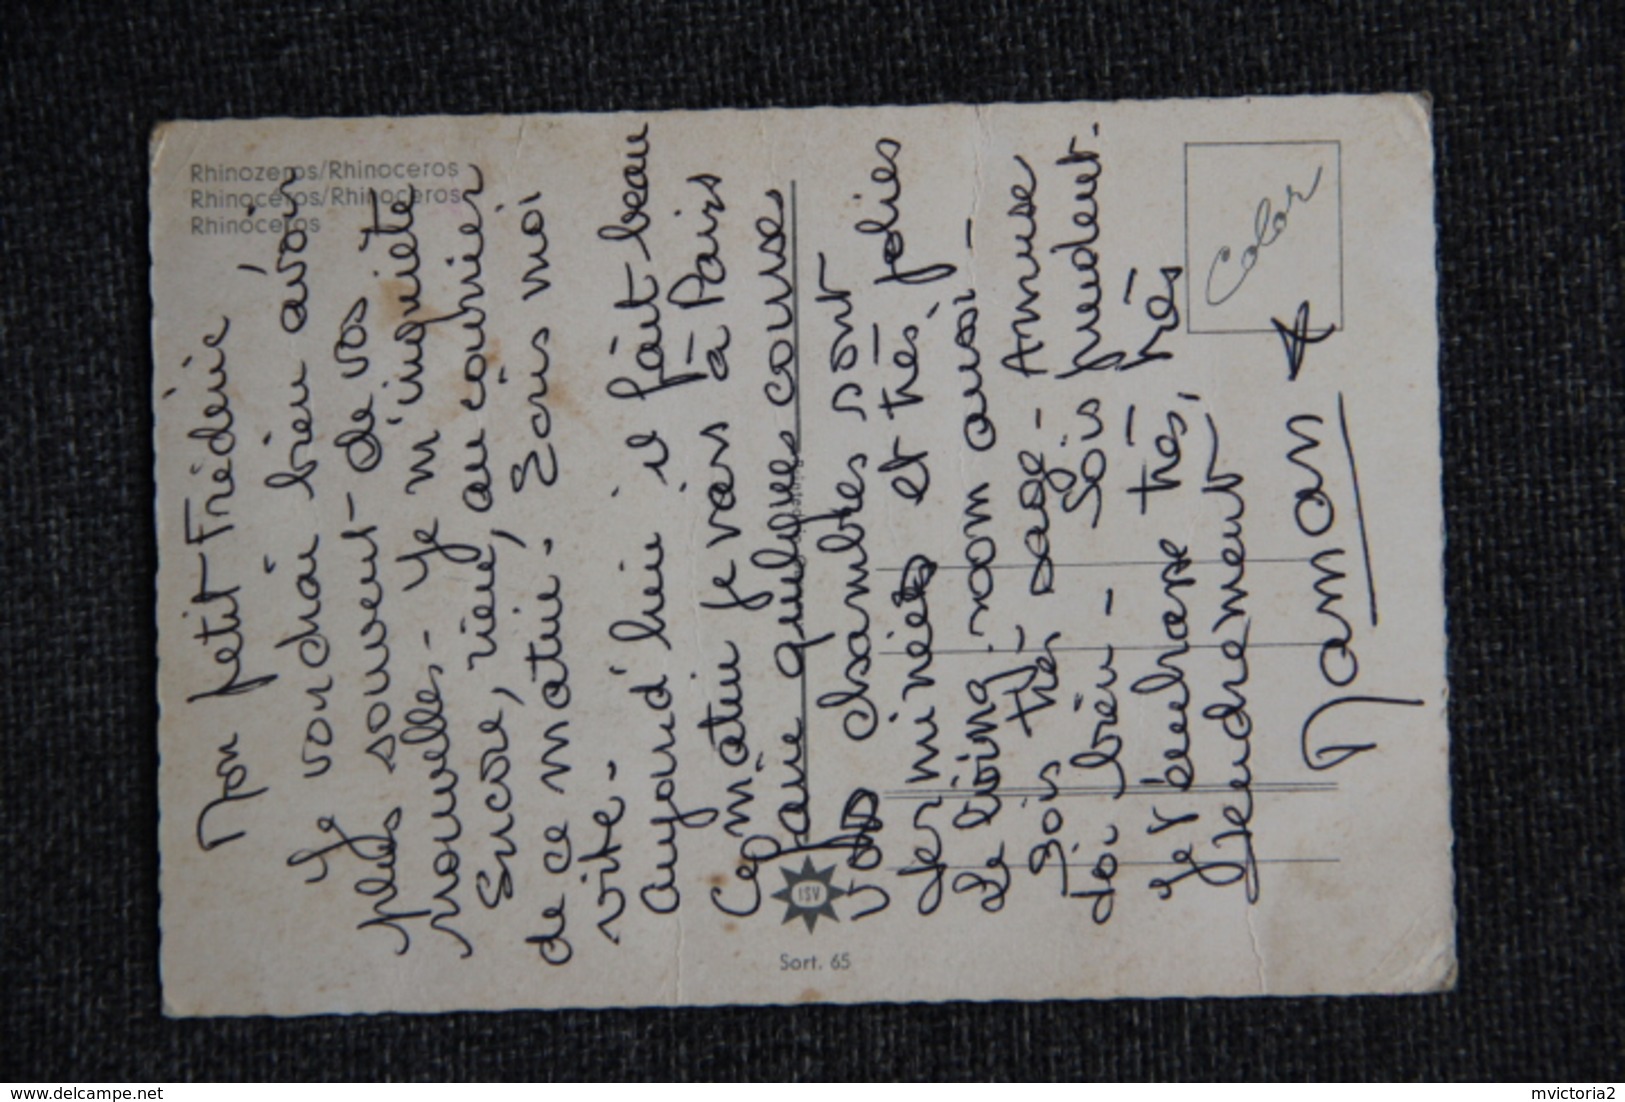 Rhinozeros/Rhinoceros
Rhinocéros/Rhinoceros
Rhinoceros
Mon petit Frédéric,
Je voudrai bien avoir
plus souvent de vos
nouvelles - Je m'inquiète
Encore, rien, au courrier
de ce matin. Ecris moi
vite -
Aujourd'hui il fait beau
Ce matin je vais à Paris
faire quelques courses
Vos chambres sont
terminées et très, jolies
Le living-room aussi -
Sois très sage - Amuse
toi bien - Sois prudent.
Je t'embrasse très, très
tendrement
Maman
Color
ISV
Sort. 65
delcampe.net
mvictoria2